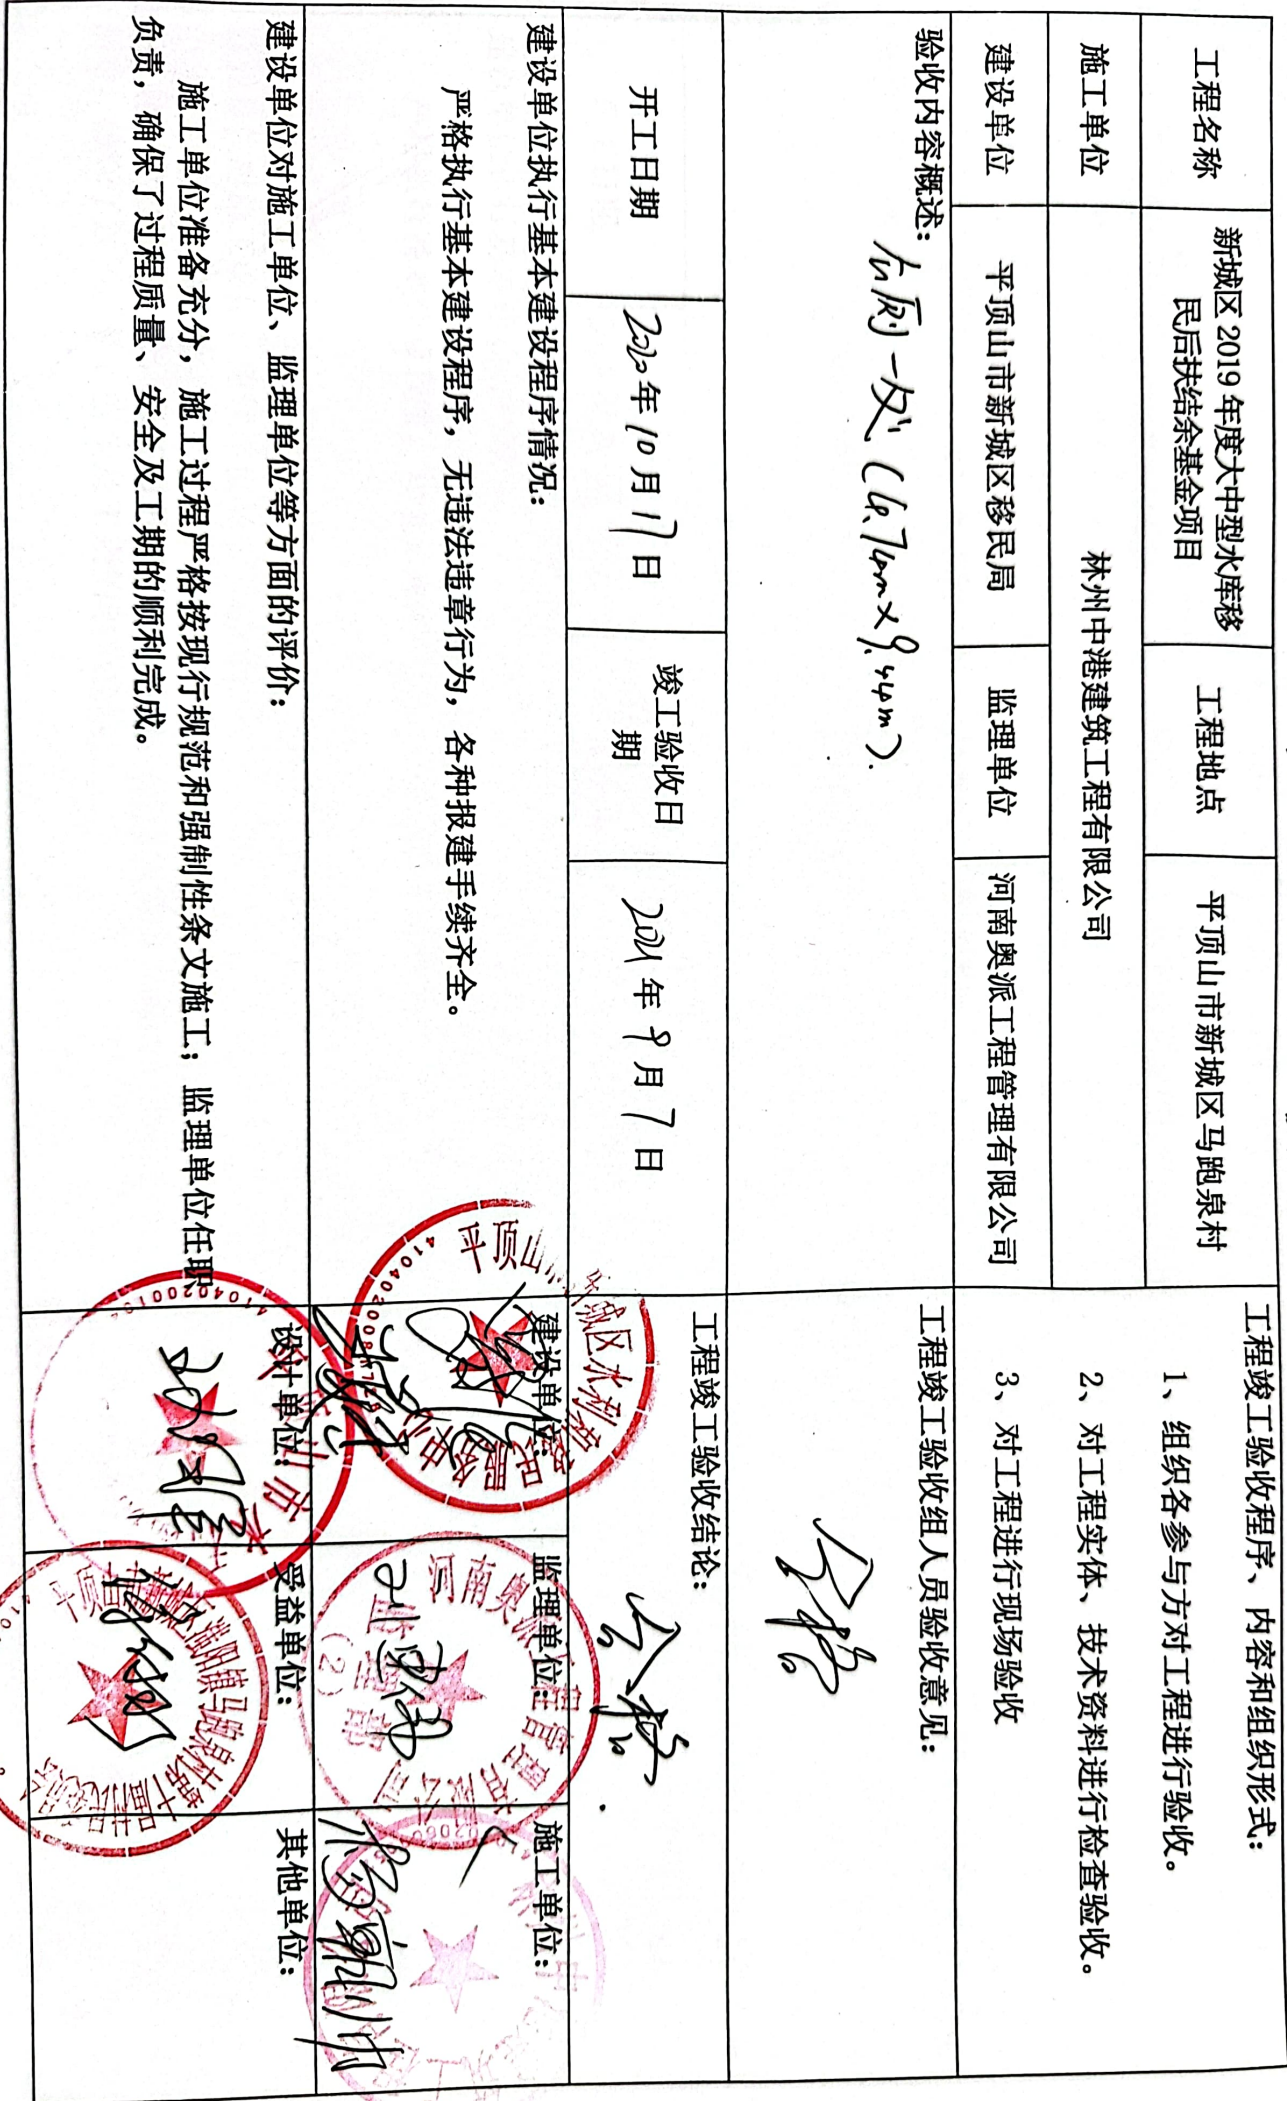 工程名称
新城区 2019 年度大中型水库移
民后扶结余基金项目
工程地点
平顶山市新城区马跑泉村
施工单位
林州中港建筑工程有限公司
建设单位
平顶山市新城区移民局
监理单位
河南奥派工程管理有限公司
验收内容概述:
公厕一处(6.74m×9.44m).
开工日期
2020年10月17日
竣工验收日
期
2021年9月7日
建设单位执行基本建设程序情况:
严格执行基本建设程序,无违法违章行为,各种报建手续齐全。
建设单位对施工单位、监理单位等方面的评价:
施工单位准备充分,施工过程严格按现行规范和强制性条文施工;监理单位任职
负责,确保了过程质量、安全及工期的顺利完成。
工程竣工验收程序、内容和组织形式:
1、组织各参与方对工程进行验收。
2、对工程实体、技术资料进行检查验收。
3、对工程进行现场验收
工程竣工验收组人员验收意见:
合格
工程竣工验收结论:
合格.
建设单位:
监理单位:
施工单位:
设计单位:
受益单位:
其他单位: